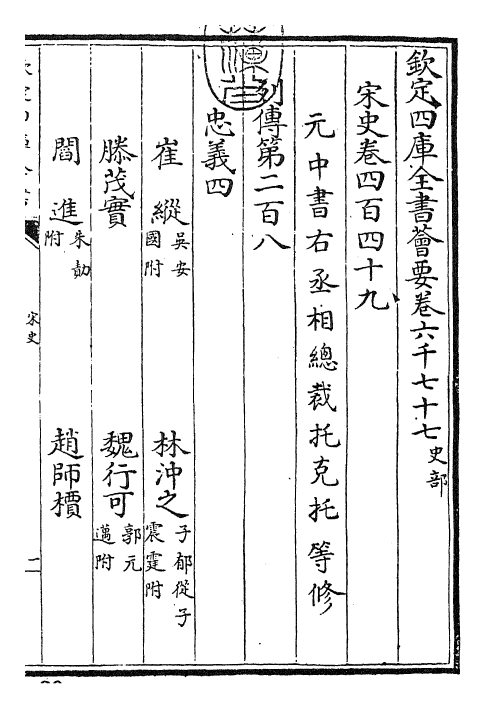 欽定四庫全書薈要卷六千七十七史部
宋史卷四百四十九
元中書右丞相總裁托克托等修
列傳第二百八
忠義四
崔縱吳安國附 林沖之子郁從子震霆附
滕茂實 魏行可郭元邁附
閻進朱勣附 趙師檟
宋史